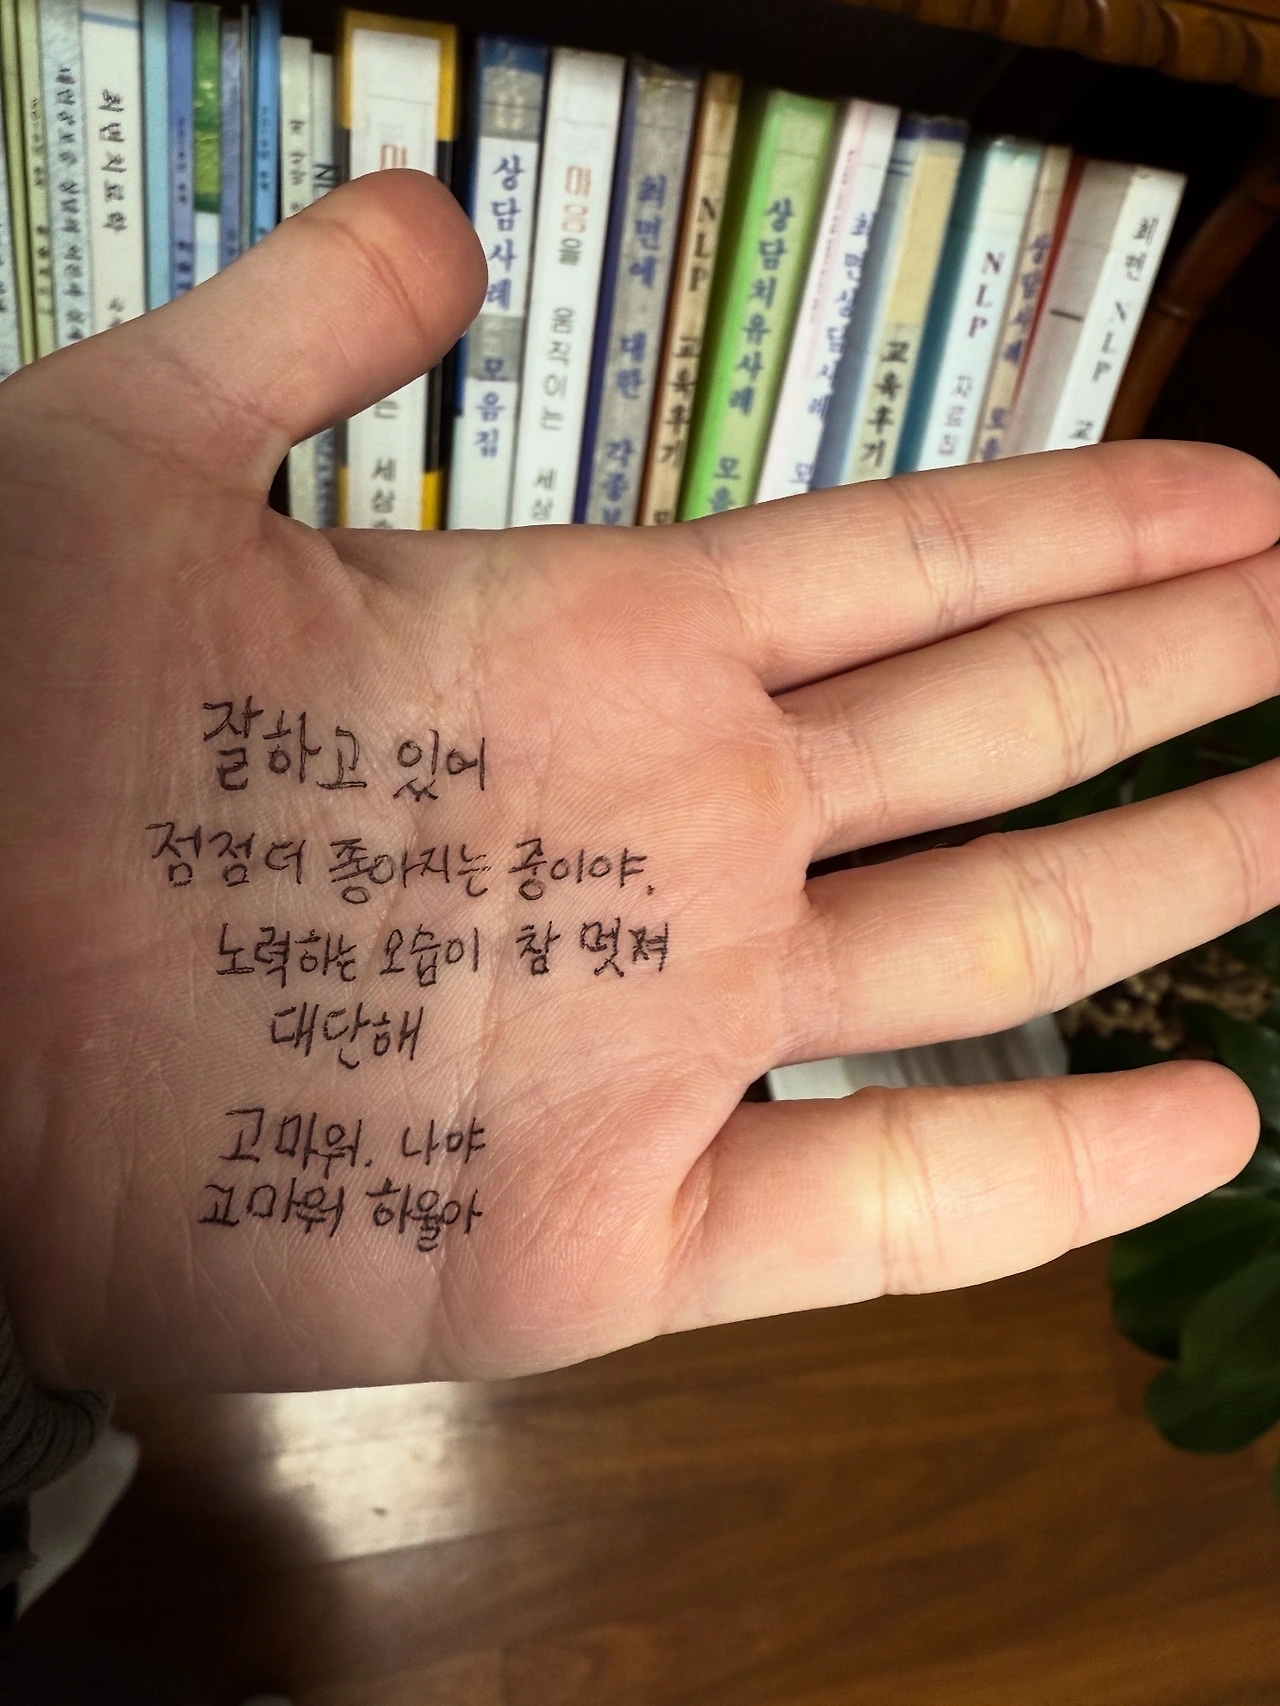 최면치료학
상담사례 모음집
마음을 움직이는 세상
최면에 대한 각종
NLP 교육후기
상담치유사례 모음
최면상담사례 모
교육후기
NLP 자료집
상담사례 모음
최면 NLP 교
는 세상
잘하고 있어
점점 더 좋아지는 중이야.
노력하는 모습이 참 멋져
대단해
고마워. 나야
고마워 하율아